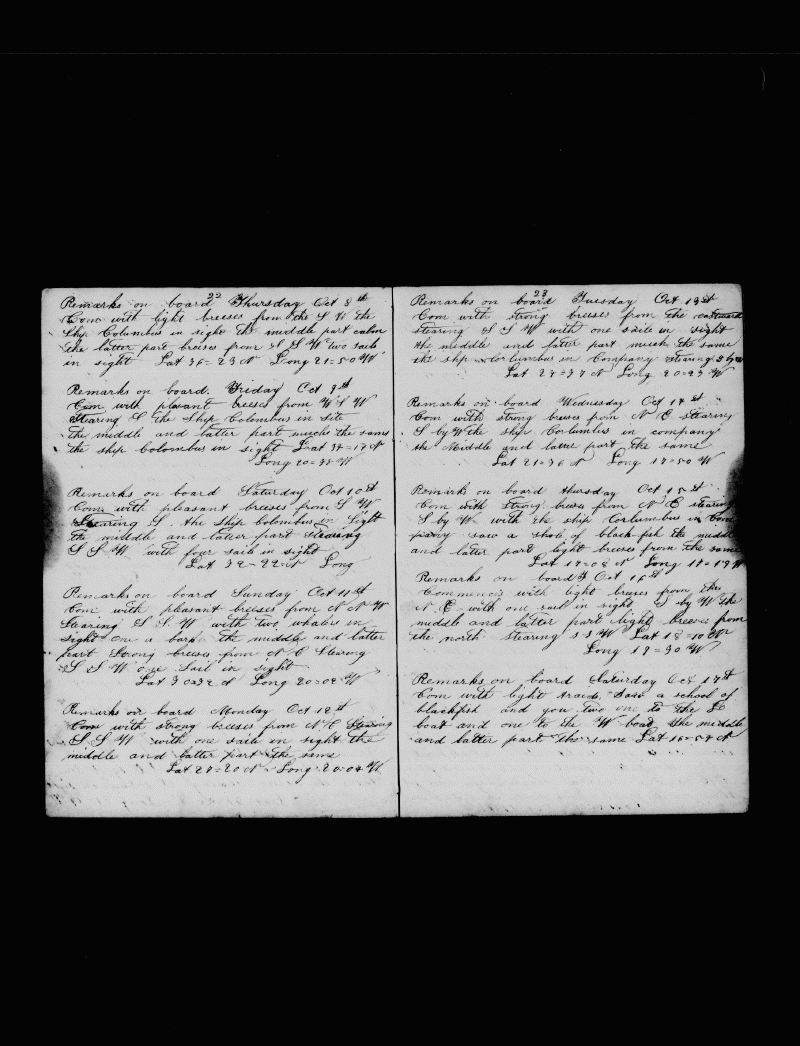 22
Remarks on board Thursday Oct 8th
Com with light breeses from the S W the
Ship Columbus in sight the middle part calm
the latter part breeses from S S W two sails
in sight Lat 36=23 N Long 21=50 W
Remarks on board. Friday Oct 9th
Com with pleasant breses from W S W
Stearing S the Ship Colombus in site
the middle and latter part muche the same
the ship Colombus in sight Lat 34=17 N
Long 20=35 W
Remarks on board Saturday Oct 10st
Com with pleasant breeses from S W
Stearing S. the Ship Colombus in Sight
the middle and latter part Stearing
S S W with four sails in sight
Lat 32=22 N Long
Remarks on board Sunday Oct 11st
Com with pleasant breeses from N N W
Stearing S S W with two whales in
sight one a barke the middle and latter
part Strong breeses from N E Stearong
S S W one Sail in sight
Lat 30=32 N Long 20=02 W
Remarks on board Monday Oct 12st
Com with strong breeses from N E Stearing
S S W with one sails in sight the
middle and latter part the same
Lat 27=20 N Long 20=04 W
23
Remarks on board Tuesday Oct 13st
Com with strong breeses from the eastward
stearing S S W with one saile in sight
the middle and latter part much the same
the ship Corlumbus in Company stearing S by W
Lat 24=37 N Long 20=23 W
Remarks on board Wednesday Oct 14st
Com with stong breeses from N E stearing
S by W the ship Corlumbus in company
the Middle and latter part the same
Lat 21=36 N Long 17=50 W
Remirks on board thursday Oct 15st
Com with Strong breses from N E stearing
S by W with the ship Corlumbus in Com
pany saw a shole of black fish the middle
and latter part light breeses from the same
Lat 17=08 N Long 18=19 W
Remarks on board F Oct 16st
Commencis with light breeses from the
N E with one sail in sight S by W the
middle and latter part light breeses from
the north stearing S S W Lat 18=10 N
Long 18=30 W
Remarks on board Saturday Oct 17st
Com with light traids. Saw a school of
blackfish and you two one to the
boat and one to the W boat the middle
and latter part the same Lat 16=54 N